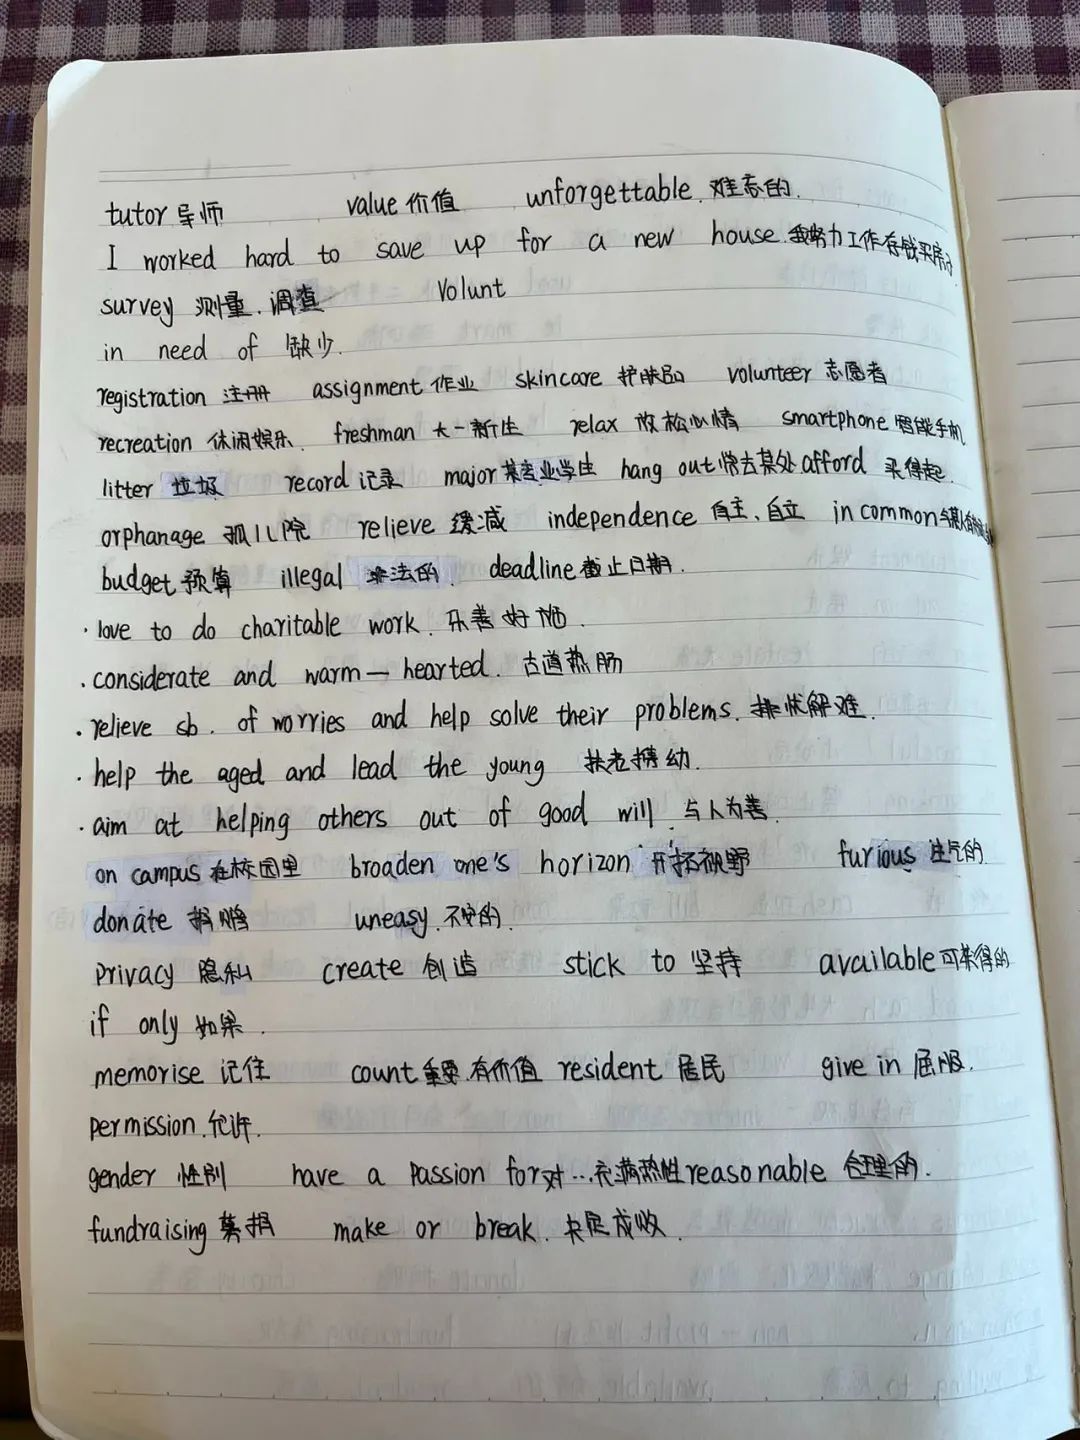 tutor 导师 value 价值 unforgettable. 难忘的.
I worked hard to save up for a new house. 我努力工作存钱买房子
survey 测量. 调查 Volunt
in need of 缺少.
registration 注册 assignment 作业 skincare 护肤品 volunteer 志愿者
recreation 休闲娱乐. freshman 大一新生 relax 放松心情 smartphone 智能手机
litter 垃圾 record 记录 major 某专业学生 hang out 常去某处 afford 买得起.
orphanage 孤儿院 relieve 缓减 independence 自主、自立 in common
budget 预算 illegal 非法的. deadline 截止日期.
· love to do charitable work. 乐善好施.
· considerate and warm—hearted. 古道热肠
· relieve sb. of worries and help solve their problems. 排忧解难.
· help the aged and lead the young 扶老携幼.
· aim at helping others out of good will. 与人为善.
on campus 在校园里 broaden one's horizon 开拓视野 furious 生气的
donate 捐赠 uneasy. 不安的.
privacy 隐私 create 创造 stick to 坚持 available 可获得的
if only 如果.
memorise 记住 count 重要. 有价值 resident 居民 give in 屈服.
permission. 允许.
gender 性别 have a passion for 对…充满热性 reasonable 合理的.
fundraising 募捐 make or break. 决定成败.